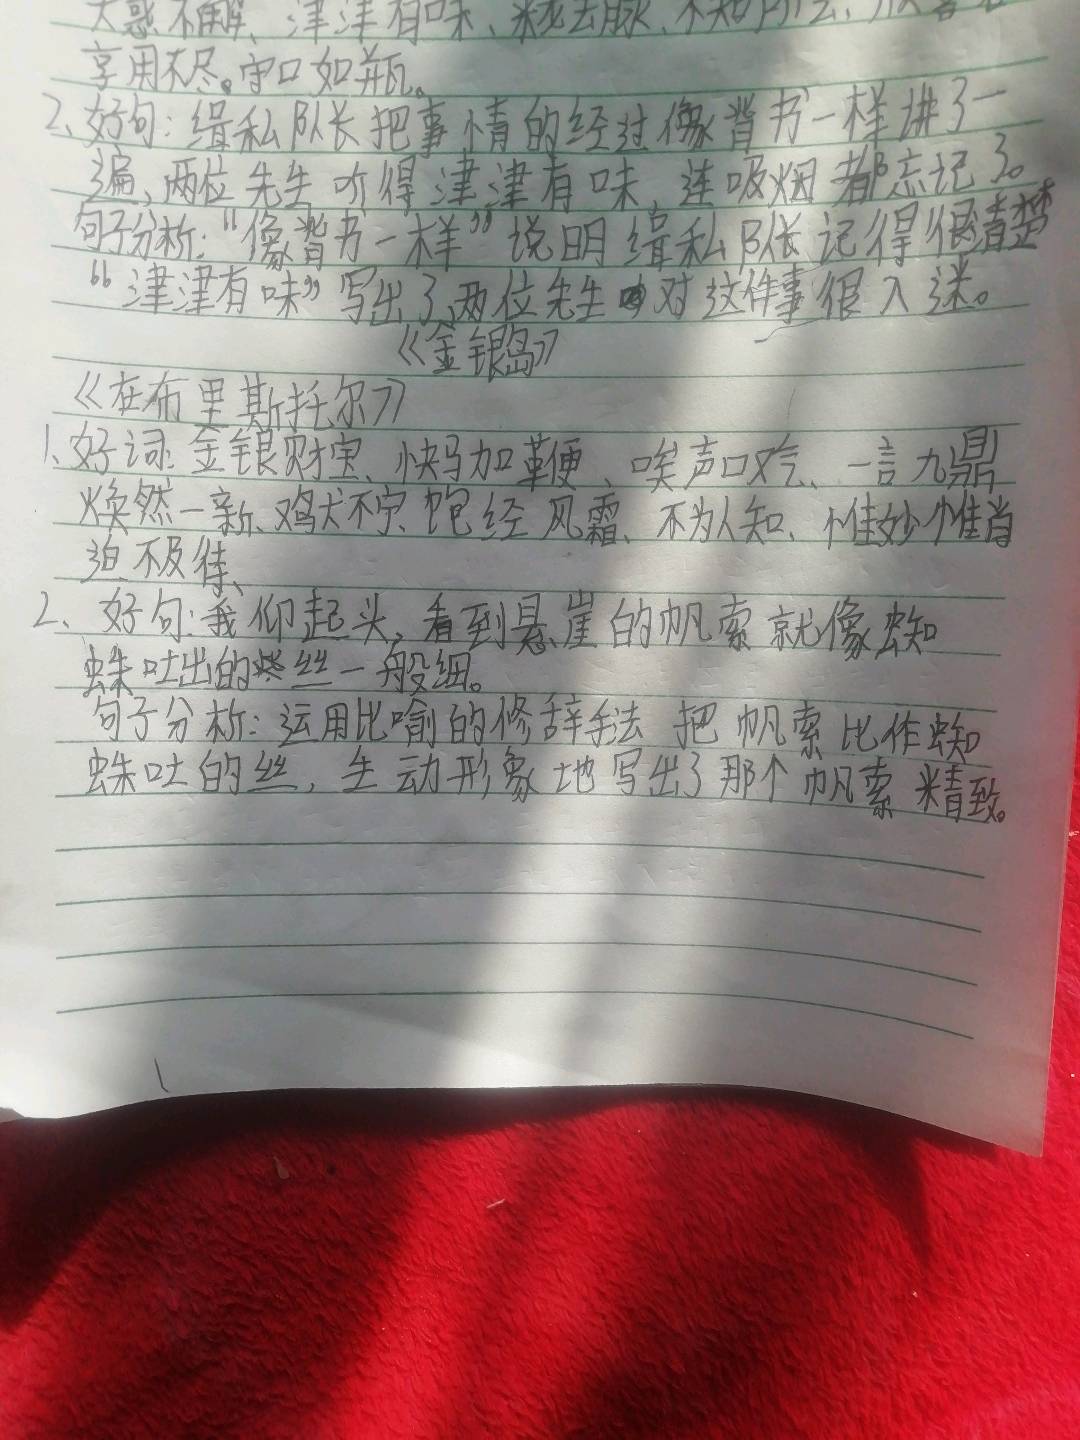 大惑不解、津津有味、来龙去脉、不知所云、
享用不尽。守口如瓶。
2、好句：缉私队长把事情的经过像背书一样讲了一
遍，两位先生听得津津有味，连吸烟都忘记了。
句子分析："像背书一样"说明缉私队长记得很清楚
"津津有味"写出了两位先生对这件事很入迷。
《金银岛》
《在布里斯托尔》
1、好词：金银财宝、快马加鞭、唉声叹气、一言九鼎
焕然一新、鸡犬不宁、饱经风霜、不为人知、惟妙惟肖
迫不及待、
2、好句：我仰起头，看到悬崖的帆索就像蜘
蛛吐出的丝一般细。
句子分析：运用比喻的修辞手法 把帆索比作蜘
蛛吐的丝，生动形象地写出了那个帆索精致。